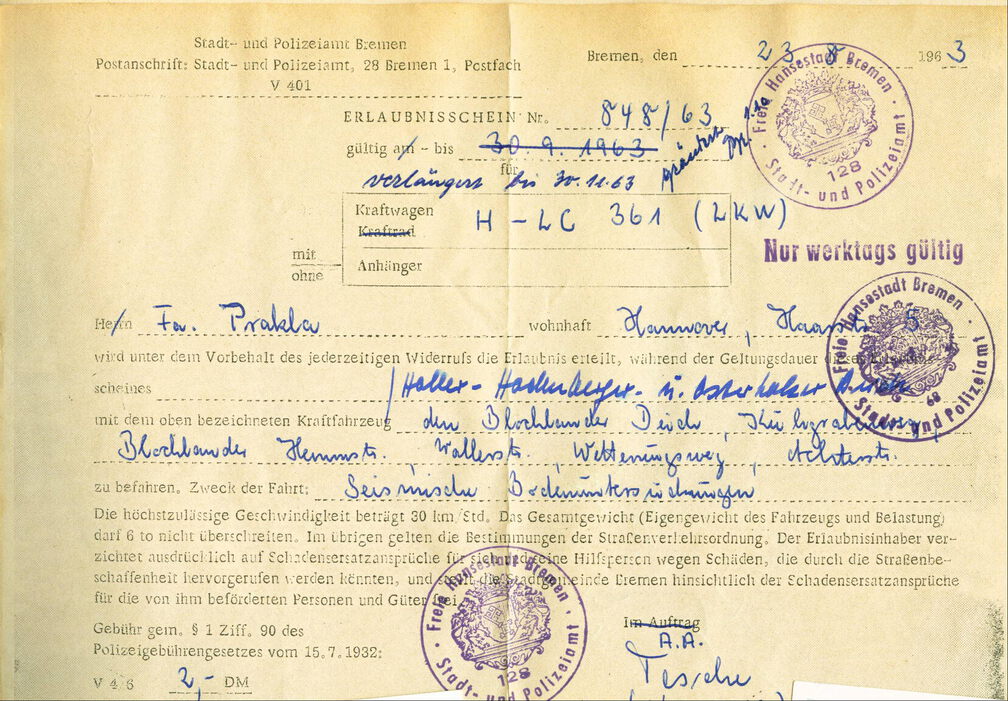 Stadt- und Polizeiamt Bremen
Postanschrift: Stadt- und Polizeiamt, 28 Bremen 1, Postfach
V 401
Bremen, den 23 8 1963
ERLAUBNISSCHEIN Nr. 848/63
gültig am - bis 30.9.1963
für
verlängert bis 30.11.63
geändert
Kraftwagen H-LC 361 (LKW)
Kraftrad
mit
ohne
Anhänger
Freie Hansestadt Bremen
128
Stadt- und Polizeiamt
Nur werktags gültig
Herrn Fa. Prakla wohnhaft Hannover, Haarstr. 5
wird unter dem Vorbehalt des jederzeitigen Widerrufs die Erlaubnis erteilt, während der Geltungsdauer dieses
scheines Holler- Hodenberger- u. Osterholzer Deich
mit dem oben bezeichneten Kraftfahrzeug den Blocklander Deich, Kuhgrabenweg,
Blocklander Hemmstr., Wallerstr., Wetterungsweg, Achterstr.
zu befahren. Zweck der Fahrt: Seismische Bodenuntersuchungen
Freie Hansestadt Bremen
68
Stadt- und Polizeiamt
Die höchstzulässige Geschwindigkeit beträgt 30 km/Std. Das Gesamtgewicht (Eigengewicht des Fahrzeugs und Belastung)
darf 6 to nicht überschreiten. Im übrigen gelten die Bestimmungen der Straßenverkehrsordnung. Der Erlaubnisinhaber ver-
zichtet ausdrücklich auf Schadensersatzansprüche für sich und seine Hilfsperson wegen Schäden, die durch die Straßenbe-
schaffenheit hervorgerufen werden könnten, und stellt die Stadtgemeinde Bremen hinsichtlich der Schadensersatzansprüche
für die von ihm beförderten Personen und Güter frei.
Gebühr gem. § 1 Ziff. 90 des
Polizeigebührengesetzes vom 15.7.1932:
V 46 2,- DM
Freie Hansestadt Bremen
128
Stadt- und Polizeiamt
Im Auftrag
A.A.
Tesche